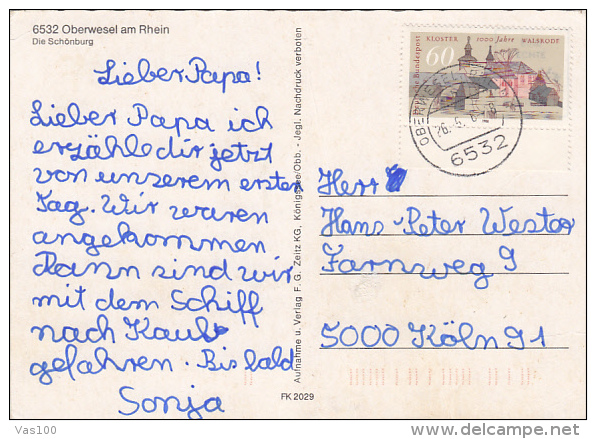 6532 Oberwesel am Rhein
Die Schönburg
Lieber Papa!
Lieber Papa ich
erzähle dir jetzt
von unserem ersten
Tag. Wir waren
angekommen
Dann sind wir
mit dem Schiff
nach Kaub
gefahren. Bis bald
Sonja
Aufnahme u. Verlag F. G. Zeitz KG, Königssee/Obb. - Jegl. Nachdruck verboten
FK 2029
Deutsche Bundespost
KLOSTER 1000 Jahre WALSRODE
60
OBERWESEL
6532
Herr
Hans-Peter Westor
Farnweg 9
5000 Köln 91
Vas100
www.delcampe.net